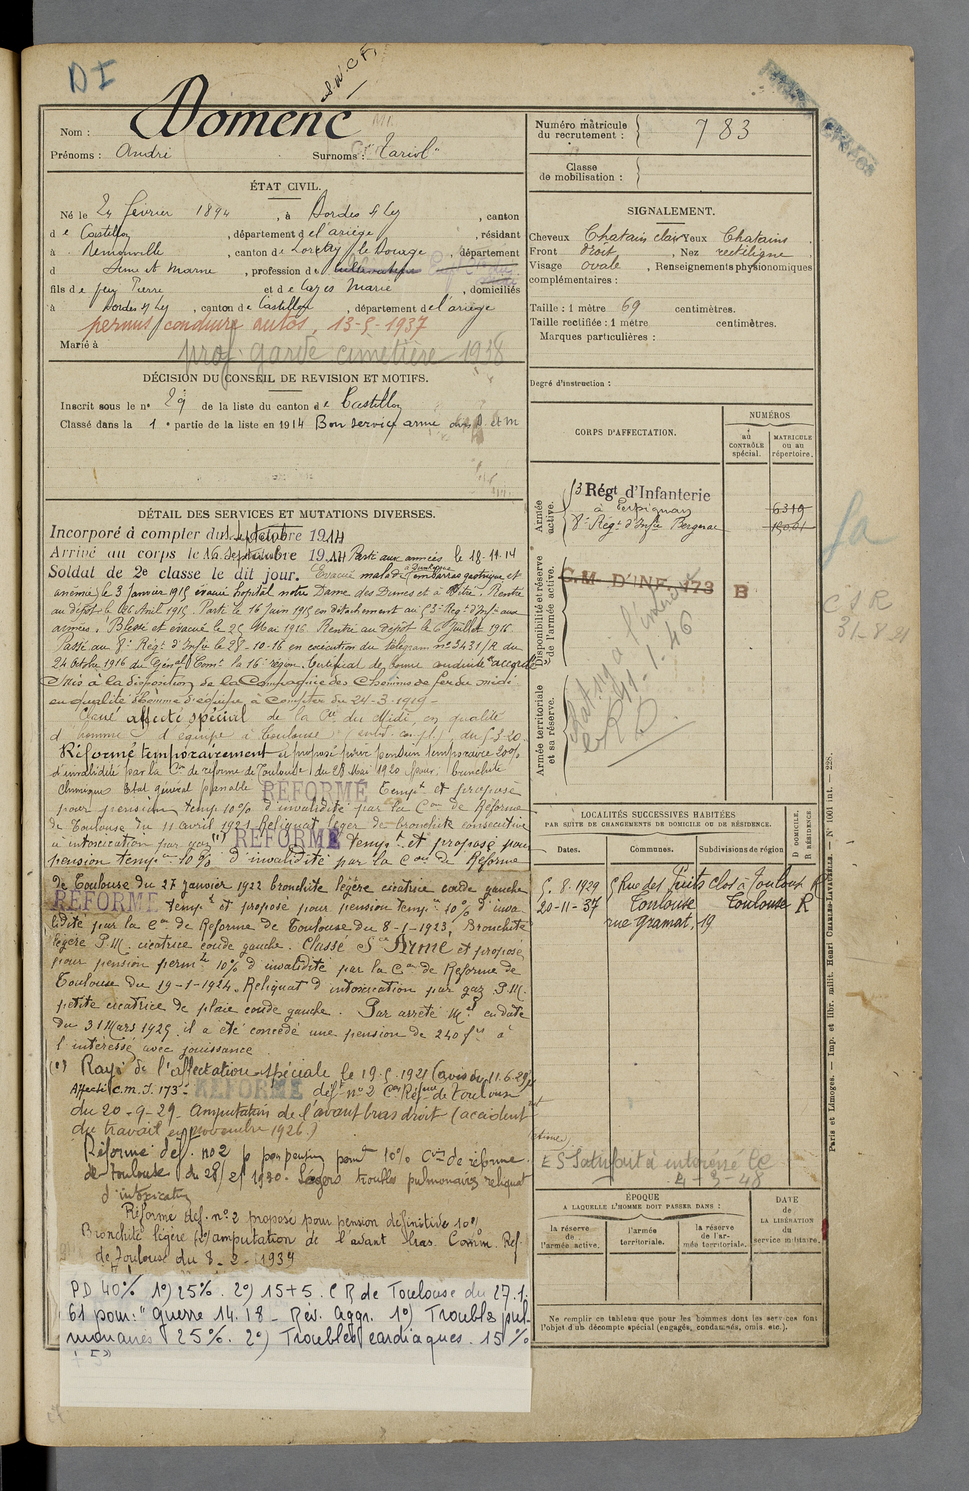 DI
S.N.C.F.
Nom : Domenc
Prénoms : André Surnoms : "Tariol"
ÉTAT CIVIL.
Né le 24 février 1894, à Bordes s/ Lez, canton
de Castillon, département de l'ariège, résidant
à Remonville, canton de Lorrez le Bocage, département
de Seine et Marne, profession de cultivateur
fils de feu Pierre et de Cazes Marie, domiciliés
à Bordes s/ Lez, canton de Castillon, département de l'ariège
permis conduire autos, 13-5-1937
Marié à
prof. garde cimetière 1938
DÉCISION DU CONSEIL DE REVISION ET MOTIFS.
Inscrit sous le n° 29 de la liste du canton de Castillon
Classé dans la 1e partie de la liste en 1914 Bon service armé
DÉTAIL DES SERVICES ET MUTATIONS DIVERSES.
Incorporé à compter du Septembre 1914
Arrivé au corps le Septembre 1914 Parti aux armées le 18-11-14
Soldat de 2e classe le dit jour. Évacué malade embarras gastrique et
anémie le 3 Janvier 1915 évacué hopital notre Dame des Dunes et à Vitré. Rentré
au dépôt le 26 Avril 1915. Parti le 16 Juin 1915 en détachement au 53e Régt d'Infie aux
armées. Blessé et évacué le 25 Mai 1916 Rentré au dépôt le 6 Juillet 1916
Passé au 8e Régt d'Infie le 28-10-16 en exécution du télégram n° 3431/R du
24 Octobre 1916 du Général Comt la 16e région. Certificat de bonne conduite accordé
Mis à la disposition de la Compagnie des Chemins de fer du midi
en qualité d'homme d'équipe à compter du 24-3-1919.
Classé affecté spécial de la Cie du Midi, en qualité
d'homme d'équipe à Toulouse (subd. compl.) du 5-3-20.
Réformé temporairement et proposé pour pension temporaire 20%
d'invalidité par la Con de réforme de Toulouse du 28 Mai 1920 pour bronchite
chronique état général passable RÉFORMÉ tempt et proposé
pour pension temp. 10% d'invalidité par la Con de Réforme
de Toulouse du 11 avril 1921 Reliquat léger de bronchite consécutive
à intoxication par gaz (1) RÉFORMÉ tempt et proposé pour
pension tempre 10% d'invalidité par la Con de Réforme
de Toulouse du 27 janvier 1922 bronchite légère cicatrice coude gauche
RÉFORMÉ tempt et proposé pour pension tempre 10% d'inva-
lidité par la Con de Réforme de Toulouse du 8-1-1923, Bronchite
légère P.M. cicatrice coude gauche. Classé Sce Armé et proposé
pour pension permte 10% d'invalidité par la Con de Réforme de
Toulouse du 19-1-1924. Reliquat d'intoxication par gaz P.M.
petite cicatrice de plaie coude gauche. Par arrêté Mel en date
du 31 Mars 1925 il a été concédé une pension de 240 frs à
l'intéressé avec jouissance
(1) Rayé de l'affectation spéciale le 19-5-1921 (avis du 11.6.29)
Affecté C.M.I. 173e RÉFORMÉ déft n° 2 Con Réfme de Toulouse
du 20-9-29. Amputation de l'avant bras droit (accident
du travail en novembre 1926.)
Réformé déf. no 2 p. pension permte 10% Con de réforme
de Toulouse du 28/5/1930. Légers troubles pulmonaires reliquat
d'intoxication
Réformé déf. n° 2 proposé pour pension définitive 10%
Bronchite légère (2°) amputation de l'avant bras. Comm. Réf.
de Toulouse du 8-2-1934
PD 40% 1°) 25%. 2°) 15+5. CR de Toulouse du 27.1.
61 pour: "guerre 14.18 - Rés. Aggr. 1°) Troubles pul-
monaires 25%. 2°) Troubles cardiaques. 15%
Numéro matricule du recrutement : 783
Classe de mobilisation :
SIGNALEMENT.
Cheveux Chatain clair Yeux Chatains
Front droit, Nez rectiligne
Visage ovale, Renseignements physionomiques
complémentaires :
Taille : 1 mètre 69 centimètres.
Taille rectifiée : 1 mètre centimètres.
Marques particulières :
Degré d'instruction :
CORPS D'AFFECTATION.
NUMÉROS
au CONTRÔLE spécial.
MATRICULE ou au répertoire.
Armée active.
53 Régt d'Infanterie
à Perpignan 6319
8e Régt d'Infie Bergerac
Disponibilité et réserve de l'armée active.
C.M. D'INF. 173 B
Armée territoriale et sa réserve.
CSR
LOCALITÉS SUCCESSIVES HABITÉES
PAR SUITE DE CHANGEMENTS DE DOMICILE OU DE RÉSIDENCE.
Dates. Communes. Subdivisions de région D DOMICILE. R RÉSIDENCE
5.8.1929 5 Rue des Puits clos à Toulouse R
20-11-37 Toulouse Toulouse R
rue Gramat, 19
ES Satisfait à intéressé
4-3-48
ÉPOQUE
A LAQUELLE L'HOMME DOIT PASSER DANS :
la réserve de l'armée active.
l'armée territoriale.
la réserve de l'armée territoriale.
DATE de LA LIBÉRATION du service militaire.
Ne remplir ce tableau que pour les hommes dont les services font
l'objet d'un décompte spécial (engagés, condamnés, omis, etc.).
Paris et Limoges. — Imp. et libr. milit. Henri CHARLES-LAVAUZELLE. — N° 1601 int. — 228.